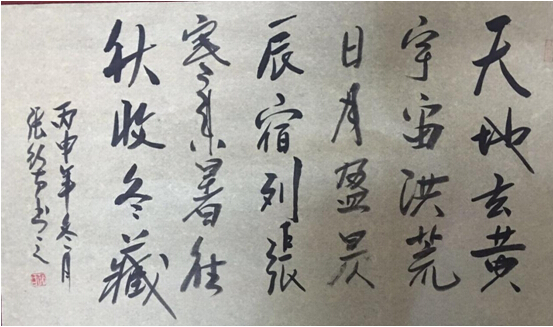 天地玄黄
宇宙洪荒
日月盈昃
辰宿列張
寒来暑往
秋收冬藏
丙申年冬月
張書之